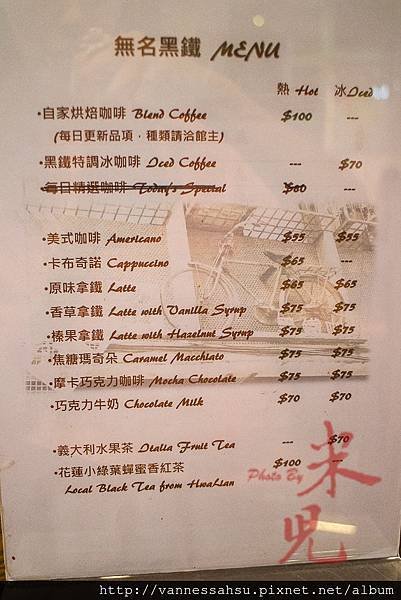 無名黑鐵 MENU
熱 Hot 冰Iced
•自家烘焙咖啡 Blend Coffee $100 ---
(每日更新品項，種類請洽館主)
•黑鐵特調冰咖啡 Iced Coffee --- $70
•每日精選咖啡 Today's Special $80
•美式咖啡 Americano $55 $55
•卡布奇諾 Cappuccino $65 ---
•原味拿鐵 Latte $65 $65
•香草拿鐵 Latte with Vanilla Syrup $75 $75
•榛果拿鐵 Latte with Hazelnut Syrup $75 $75
•焦糖瑪奇朵 Caramel Macchiato $75 $75
•摩卡巧克力咖啡 Mocha Chocolate $75 $75
•巧克力牛奶 Chocolate Milk $70 $70
•義大利水果茶 Italia Fruit Tea --- $70
•花蓮小綠葉蟬蜜香紅茶 $100 ---
Local Black Tea from HwaLian
Photo By
米兒
http://vannessahsu.pixnet.net/album